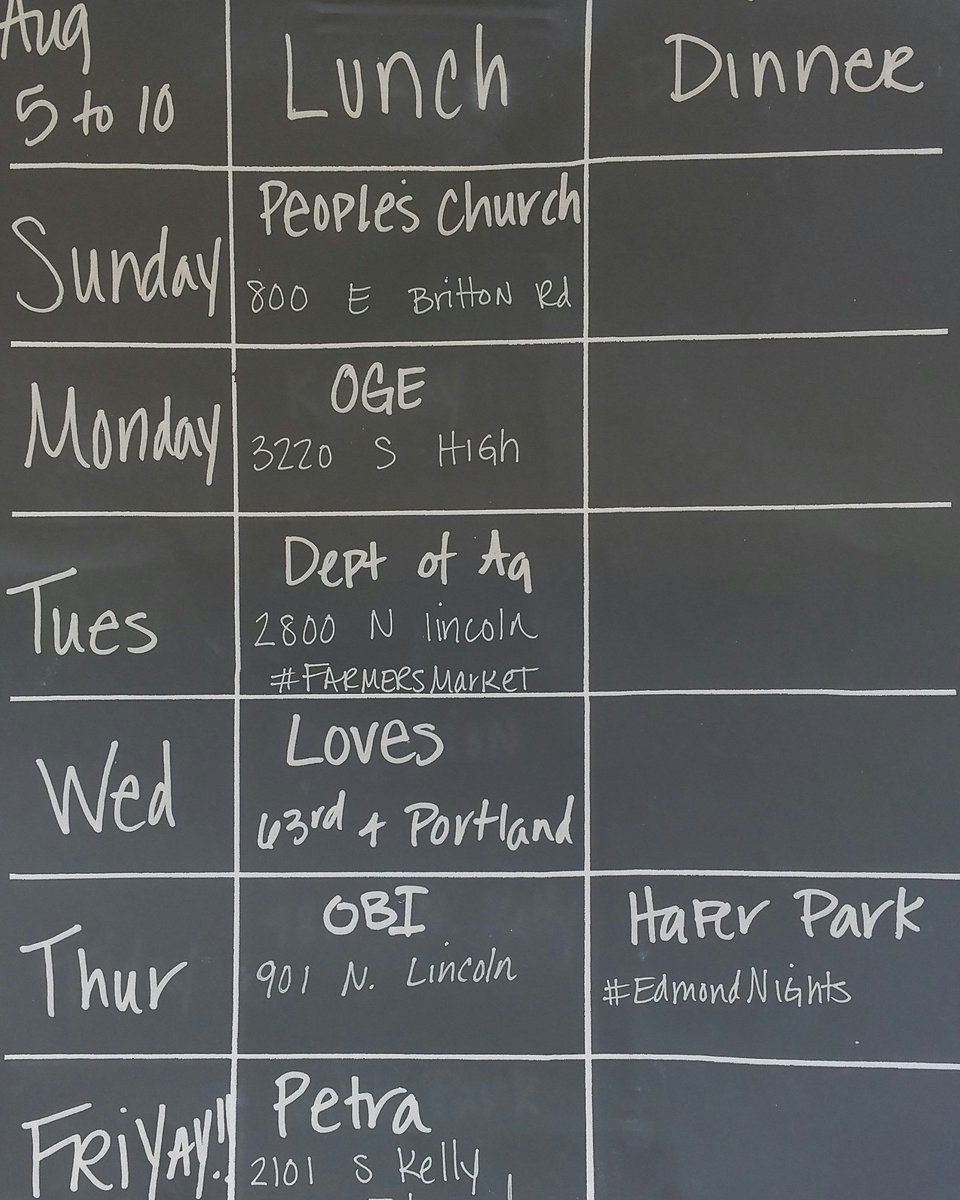 Aug
5 to 10
Lunch
Dinner
Sunday
People's Church
800 E Britton Rd
Monday
OGE
3220 S High
Tues
Dept of Ag
2800 N lincoln
#FARMERSMarket
Wed
Loves
63rd + Portland
Thur
OBI
901 N. Lincoln
Hafer Park
#EdmondNights
FRiYAY!!
Petra
2101 S Kelly